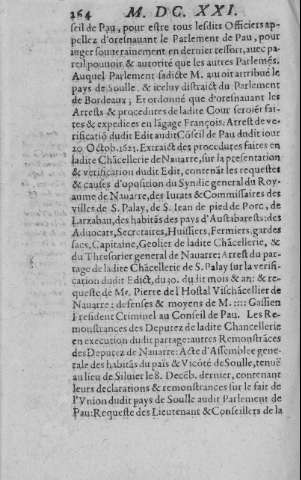 264 M. DC. XXI.
seil de Pau, pour estre tous lesdits Officiers ap-
pellez d'oresnauant le Parlement de Pau, pour
iuger souuerainement en dernier ressort, auec pa-
reil pouuoir & autorité que les autres Parlemés.
Auquel Parlement sadicte M. auoit attribué le
pays de Soulle, & iceluy distraict du Parlement
de Bordeaux; Et ordonné que d'oresnauant les
Arrests & procedures de ladite Cour seroiét fai-
ctes & expedices en lágage François: Arrest de ve-
rificatiō dudit Edit audit Cōseil de Pau dudit iour
20 Octob. 1621. Extraict des procedures faites en
ladite Chācellerie de Nauarre, sur la presentation
& verification dudit Edit, contenāt les requestes
& causes d'oposition du Syndic general du Roy-
aume de Nauarre, des Iurats & Commissaires des
villes de S. Palay, de S. Iean de pied de Porc, de
Larzabau, des habitās des pays d'Austabarests: des
Aduocats, Secretaires, Huissiers, Fermiers, gardes
sacs, Capitaine, Geolier de ladite Chācellerie, &
du Thresorier general de Nauarre: Arrest du par-
tage de ladite Chācellerie de S. Palay sur la verifi-
cation dudit Edict, du 30. du dit mois & an: & re-
queste de Mr. Pierre de l'Hostal Vischācellier de
Nauarre: defenses & moyens de M. :::: Gassien
President Criminel au Conseil de Pau. Les Re-
monstrances des Deputez de ladite Chancellerie
en execution dudit partage: autres Remonstrāces
des Deputez de Nauarre: Acte d'Assemblee gene-
rale des habitās du païs & Vicōté de Soulle, tenuë
au lieu de Siluiet le 8. Decēb. dernier, contenant
leurs declarations & remonstrances sur le fait de
l'Vnion dudit pays de Soulle audit Parlement de
Pau: Requeste des Lieutenant & Conseillers de la